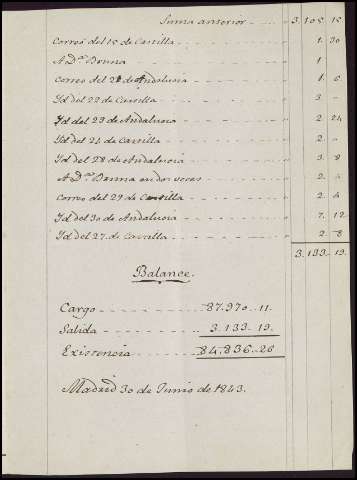 Suma anterior 3.105 15
Correo del 18 de Castilla 1. 30
A D.ª Bruna 1
Correo del 21 de Andalucia 1. 6
Yd del 22 de Castilla 3 -
Yd del 23 de Andalucia 2 24
Yd del 24 de Castilla 2 -
Yd del 28 de Andalucia 3. 8
A D.ª Bruna en dos veces 2. 4
Correo del 29 de Castilla 2. 4
Yd del 30 de Andalucia 7. 12
Yd del 27 de Castilla 2. 8
3.133. 19.
Balance.
Cargo 87.970.. 11.
Salida 3.133.. 19.
Existencia 84.836.. 26
Madrid 30 de Junio de 1843.